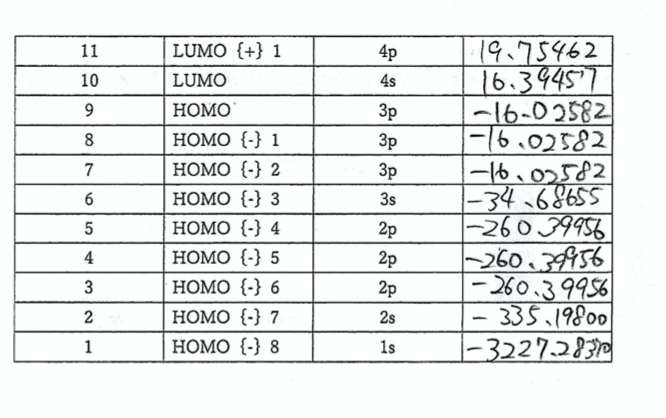 11 LUMO {+} 1 4p 19.75462
10 LUMO 4s 16.39457
9 HOMO 3p -16.02582
8 HOMO {-} 1 3p -16.02582
7 HOMO {-} 2 3p -16.02582
6 HOMO {-} 3 3s -34.68655
5 HOMO {-} 4 2p -260.39956
4 HOMO {-} 5 2p -260.39956
3 HOMO {-} 6 2p -260.39956
2 HOMO {-} 7 2s -335.19800
1 HOMO {-} 8 1s -3227.28370